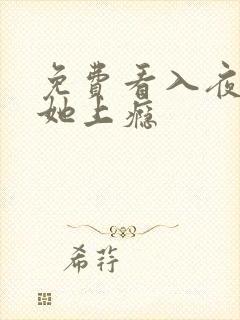 免費看入夜
她上癮
希荇